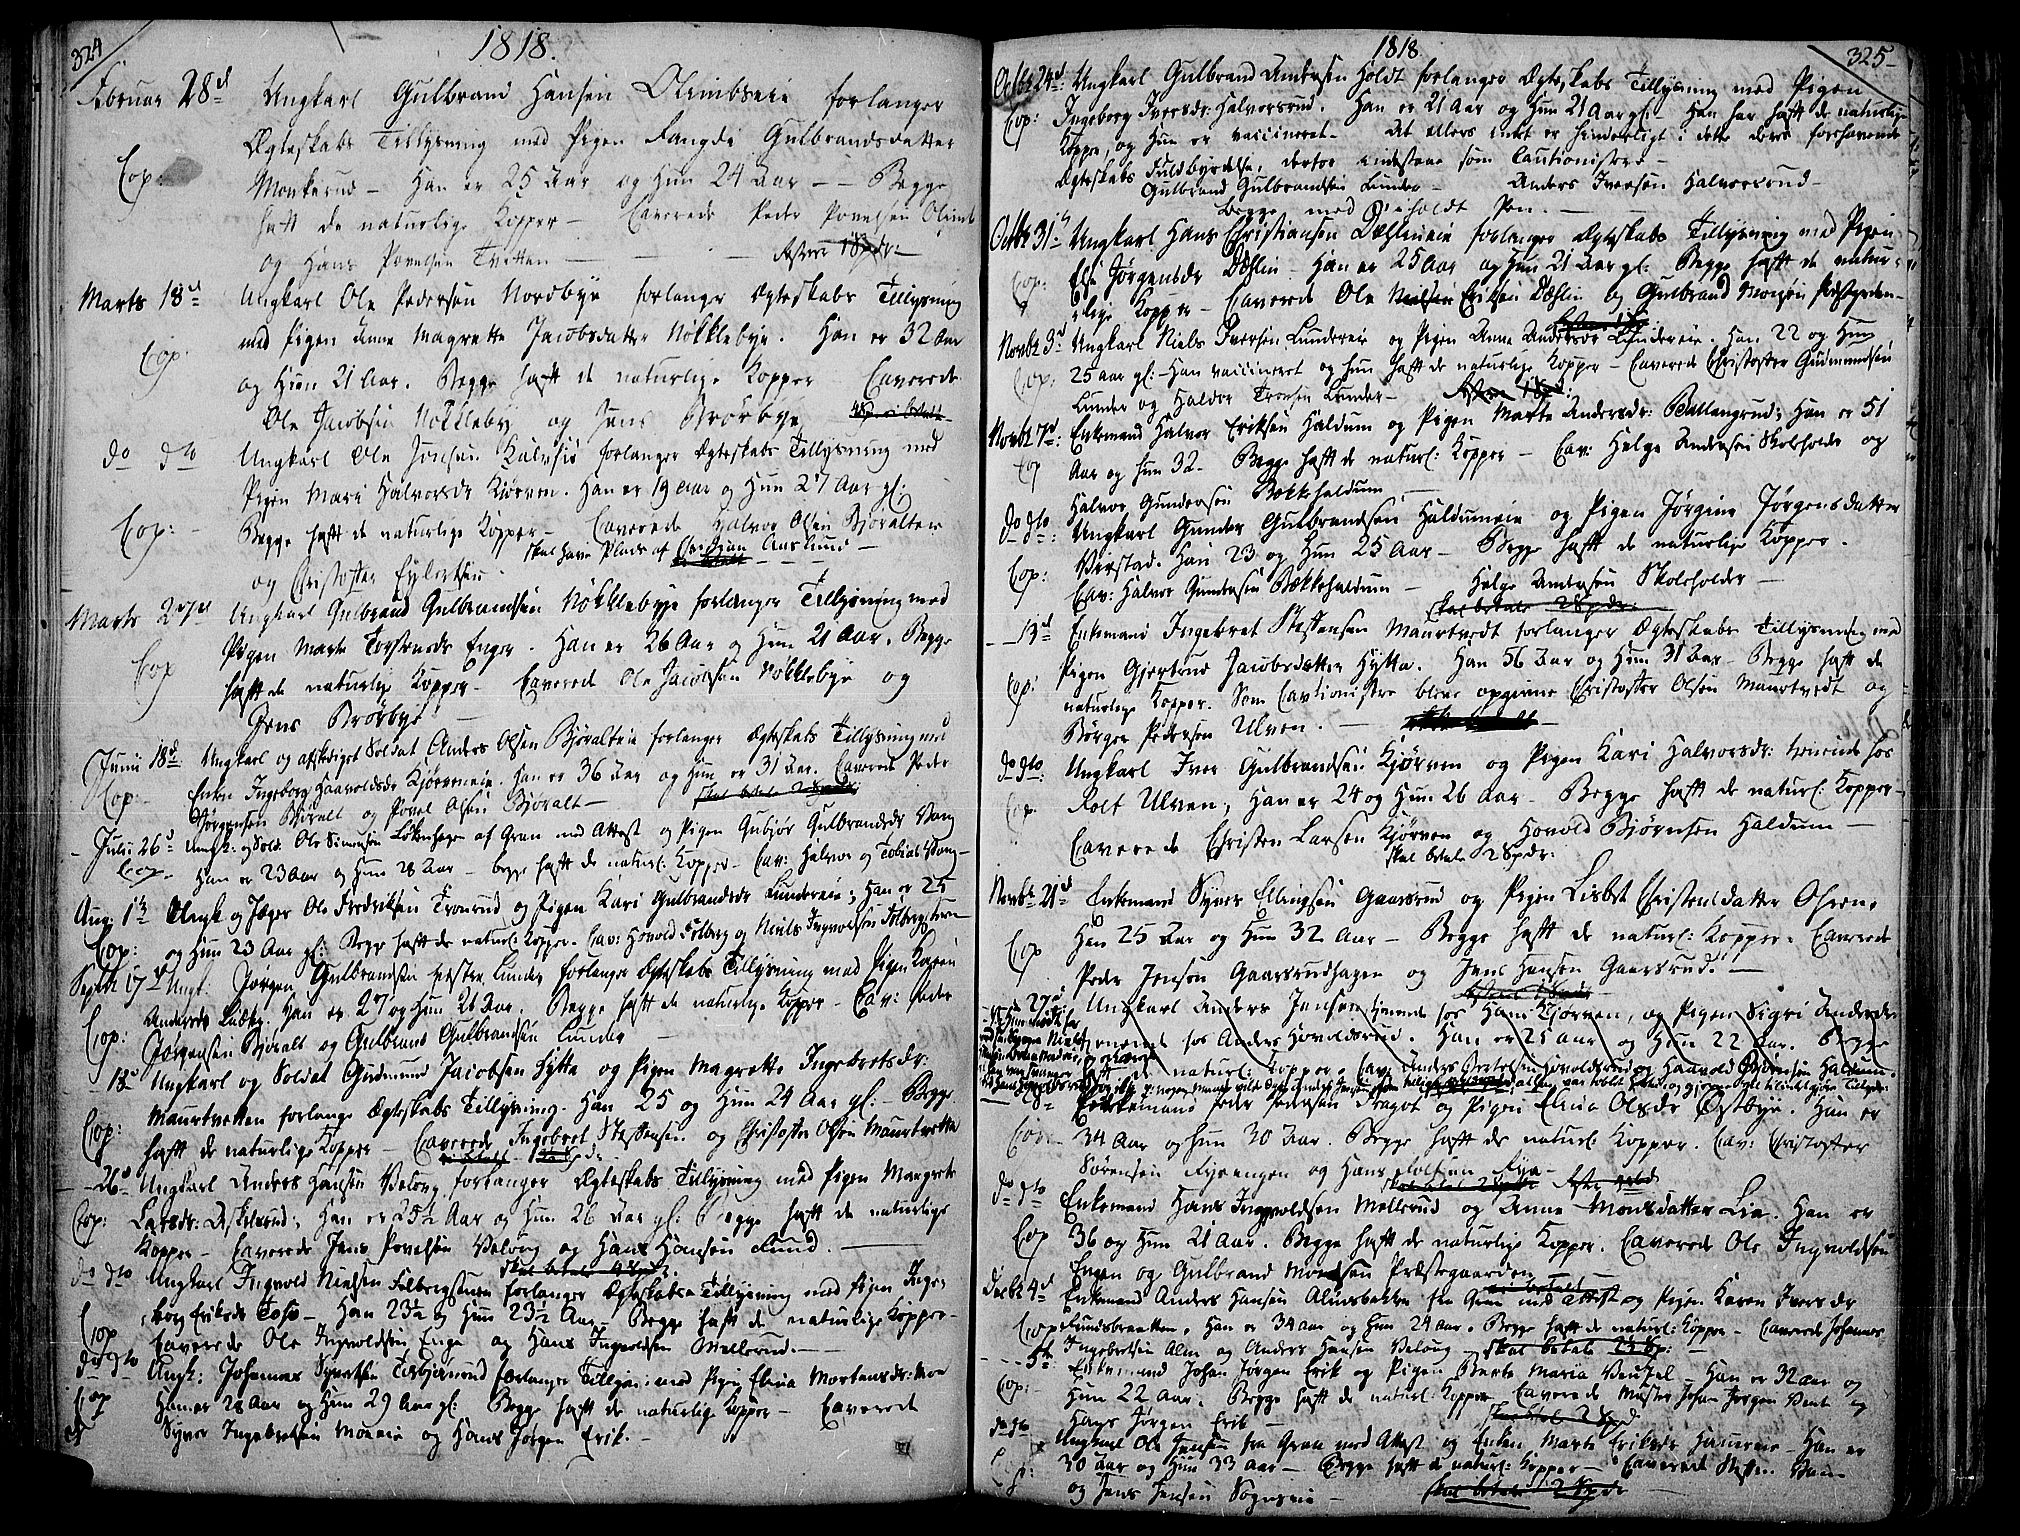 324
1818.
Februar 28d Ungkarl Gulbrand Hansen Olimbseie forlanger
Ægteskabs Tillysning med Pigen Langdi Gulbrandsdatter
Cop: Monkerud – Han er 25 Aar og Hun 24 Aar – – Begge
haft de naturlige Kopper – Caverede Peder Povelsen Olimb
og Hans Povelsen Tvitten –
Marts 18d Ungkarl Ole Pedersen Nordbye forlanger Ægteskabs Tillysning
med Pigen Anne Magrette Jacobsdatter Nøkklebye. Han er 32 Aar
Cop: og Hun 21 Aar. Begge haft de naturlige Kopper Caverede
Ole Jacobsen Nøkkleby og Jens Brørbye
do dto Ungkarl Ole Jensen Kalvsiø forlanger Ægteskabs Tillysning med
Pigen Mari Halvorsdr Kjørven. Han er 19 Aar og Hun 27 Aar gl:
Cop: – Begge haft de naturlige Kopper – Caverede Halvor Olsen Bjøralteie
og Christopher Eylertsen. skal have Plads af Aaslund –
Marts 27de Ungkarl Gulbrand Gulbrandsen Nøkklebye forlanger Tillysning med
Pigen Marte Torstensdr Enger. Han er 26 Aar og Hun 21 Aar. Begge
Cop haft de naturlige Kopper – Caverede Ole Jacobsen Nøkklebye og
Jens Brørbye –
Junii 18d: Ungkarl og afskediget Soldat Anders Olsen Bjøralteie forlanger Ægteskabs Tillysning med
Enken Ingeborg Haavoldsdr Kjørveneie. Han er 36 Aar og Hun er 31 Aar. Caverede Peder
Cop: Jørgensen Bjøralt og Povel Olsen Bjøralt – skal betale 2 Spdr
Julii 26d Ungk: og Sold. Ole Simensen Løkenhagen af Gran med Attest og Pigen Gubjør Gulbrandsdr Vang
Cop – Han er 23 Aar og Hun 28 Aar – begge haft de naturl: Kopper – Cav: Halvor og Tobias Vang –
Aug: 1te Ungk og Jæger Ole Fredriksen Tronrud og Pigen Kari Gulbrandsdr Lundereie; Han er 25
Cop: og Hun 23 Aar gl: Begge haft de naturl: Kopper. Cav: Hovold Folberg og Niels Ingvoldsen Folbergstuen
Septbr 17de Ungk: Jørgen Gulbrandsen vestre Lunder forlanger Ægteskabs Tillysning med Pigen Karen
Andersdr. Han er 27 og Hun 26 Aar. Begge haft de naturlige Kopper – Cav: Peder
Cop: Jørgensen Bjøralt og Gulbrand Gulbrandsen Lunder –
18d Ungkarl og Soldat Gudmund Jacobsen Hytta og Pigen Magrette Ingebretsdr:
Maurtvetten forlange Ægteskabs Tillysning. Han 25 og Hun 24 Aar gl: – Begge
Cop: haft de naturlige Kopper – Caverede Ingebret Steffensen og Christopher Olsen Maurtvetta
– 26d Ungkarl Anders Hansen Velong forlanger Ægteskabs Tillysning med Pigen Margrete
Cop: Larsdr: Askelsrud; Han er 25½ Aar og Hun 26 Aar gl: Begge haft de naturlige
Kopper – Caverede Jens Povelsen Velong og Hans Hansen Lund. –
do dto Ungkarl Ingvold Nielsen Folbergstuen forlanger Ægteskabs Tillysning med Pigen Inge-
borg Eriksdr Toso – Han 23½ og Hun 23½ Aar – Begge haft de naturlige Kopper –
Cop Caverede Ole Ingvoldsen Enge og Hans Ingvoldsen Mellerud. –
do dto Ungk: Johannes Syversen Torbjørnrud forlanger Tillysn: med Pigen Eline Mortensdr: Moe
Cop Han er 28 Aar og Hun 29 Aar gl: Begge haft de naturlige Kopper – Caverede
Syver Ingebretsen Moeeie og Hans Jørgen Erik. –
1818
325
Octbr 24d: Ungkarl Gulbrand Andersen Holdt forlanger Ægteskabs Tillysning med Pigen
Cop: Ingeborg Iversdr. Halvorsrud. Han er 21 Aar og Hun 21 Aar gl: – Han har haft de naturlige
Kopper, og Hun er vaccineret – At ellers intet er hinderligt i dette deres forehavende
Ægteskabs Fuldbyrdelse, derfor indestaae som Cautionister –
Gulbrand Gulbrandsen Lunder – Anders Iversen Halvorsrud –
begge med Paaholdt Pen. –
Octbr 31te Ungkarl Hans Christiansen Dæhlineie forlanger Ægteskabs Tillysning med Pigen
Cop: Else Jørgensdr Dæhlin – Han er 25 Aar og Hun 21 Aar gl: Begge haft de natur-
lige Kopper – Caverede Ole Eriksen Dæhlin og Gulbrand Monsen Præstgarden –
Novbr 3d Ungkarl Niels Iversen Lundereie og Pigen Anne Andersdr Lundereie. Han 22 og Hun
Cop: 25 Aar gl: Han vaccineret og Hun haft de naturlige Kopper – Caverede Christopher Gudmundsen
Lunder og Haldor Tronsen Lunder –
Novbr 7d: Enkemand Halvor Eriksen Haldum og Pigen Marte Andersdr: Ballangrud; Han er 51
Cop Aar og Hun 32 – Begge haft de naturl: Kopper – Cav: Helge Andersen Skoleholder og
Halvor Gundersen Bækkehaldum. –
do dto: Ungkarl Gunder Gulbrandsen Haldumeie og Pigen Jørgine Jørgensdatter
Cop: Virstad. Han 23 og Hun 25 Aar – Begge haft de naturlige Kopper.
Cav: Halvor Gundersen Bækkehaldum – Helge Andersen Skoleholder –
skal betale 2 Spdr:
– 13d Enkemand Ingebret Steffensen Maurtvedt forlanger Ægteskabs Tillysning med
Cop: Pigen Gjertrud Jacobsdatter Hytta. Han 56 Aar og Hun 31 Aar – Begge haft de
naturlige Kopper. Som Cautionister bleve opgivne Christopher Olsen Maurtvedt og
Børger Pedersen Ulven. –
do dto: Ungkarl Iver Gulbrandsen Kjørven og Pigen Kari Halvorsdr: tienende hos
Cop. Rolf Ulven; Han er 24 og Hun 26 Aar – Begge haft de naturl: Kopper –
Caverede Christen Larsen Kjørven og Hovold Bjørnsen Haldum –
skal betale 2 Spdr:
Novbr 21d Enkemand Syver Ellingsen Gaarsrud og Pigen Lisbet Christensdatter
Cop Han 25 Aar og Hun 32 Aar – Begge haft de naturl: Kopper. Caverede
Peder Jensen Gaarsrudhagen og Jens Hansen Gaarsrud. –
27d Ungkarl Anders Jensen tienende hos Hans Kjørven, og Pigen Sigri Andersdr
tienende hos Anders Hovoldsrud. Han er 25 Aar og Hun 22 Aar. Begge
haft de naturl: Kopper. Cav: Anders Hovoldsrud og Haavold Bjørnsen Haldum.
Enkemand Peder Pedersen Fragot og Pigen Eline Olsdr Østbye. Han er
Cop 34 Aar og Hun 30 Aar. Begge haft de naturl: Kopper. Cav: Christopher
Sørensen Ryeengen og Hans Rye –
do dto Enkemand Hans Ingvoldsen Mellerud og Anne Monsdatter Lie. Han er
Cop 36 og Hun 21 Aar. Begge haft de naturlige Kopper. Caverede Ole Ingvoldsen
Engen og Gulbrand Monsen Præstegaarden –
Decbr 4d Enkemand Anders Hansen Alundbakken fra Gran med Attest og Pigen Karen Iversdr
Cop Lundsbraaten. Han er 34 Aar og Hun 24 Aar. Begge haft de naturl: Kopper – Caverede Johannes
Ingebretsen Alm og Anders Hansen Velong –
– 5te: Enkemand Johan Jørgen Erik og Pigen Berte Maria Wentzel – Han er 32 Aar og
Cop: Hun 22 Aar. Begge haft de naturl: Kopper Caverede Mester Johan Jørgen Went og
Hans Jørgen Erik –
do dto Ungkarl Ole Jensen fra Gran med Attest og Enken Marte Eriksdr – Han er
Cop: 30 Aar og Hun 33 Aar – Begge haft de naturl: Kopper – Caverede Steffen
og Jens Jensen Sognseie –